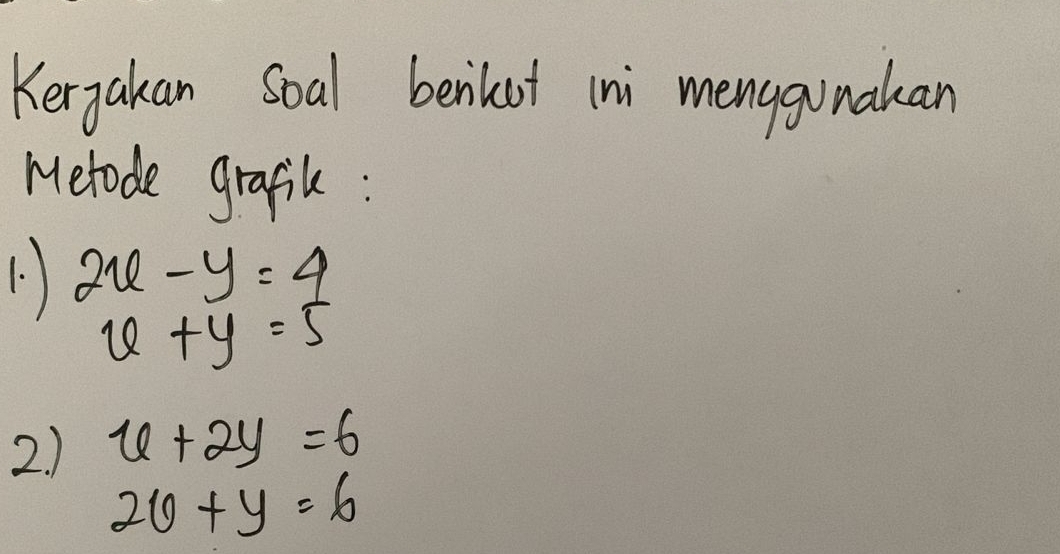 Kerjakan Soal berikut ini menggunakan
Metode grafik :
1.) 2x - y = 4
x + y = 5
2.) x + 2y = 6
2x + y = 6